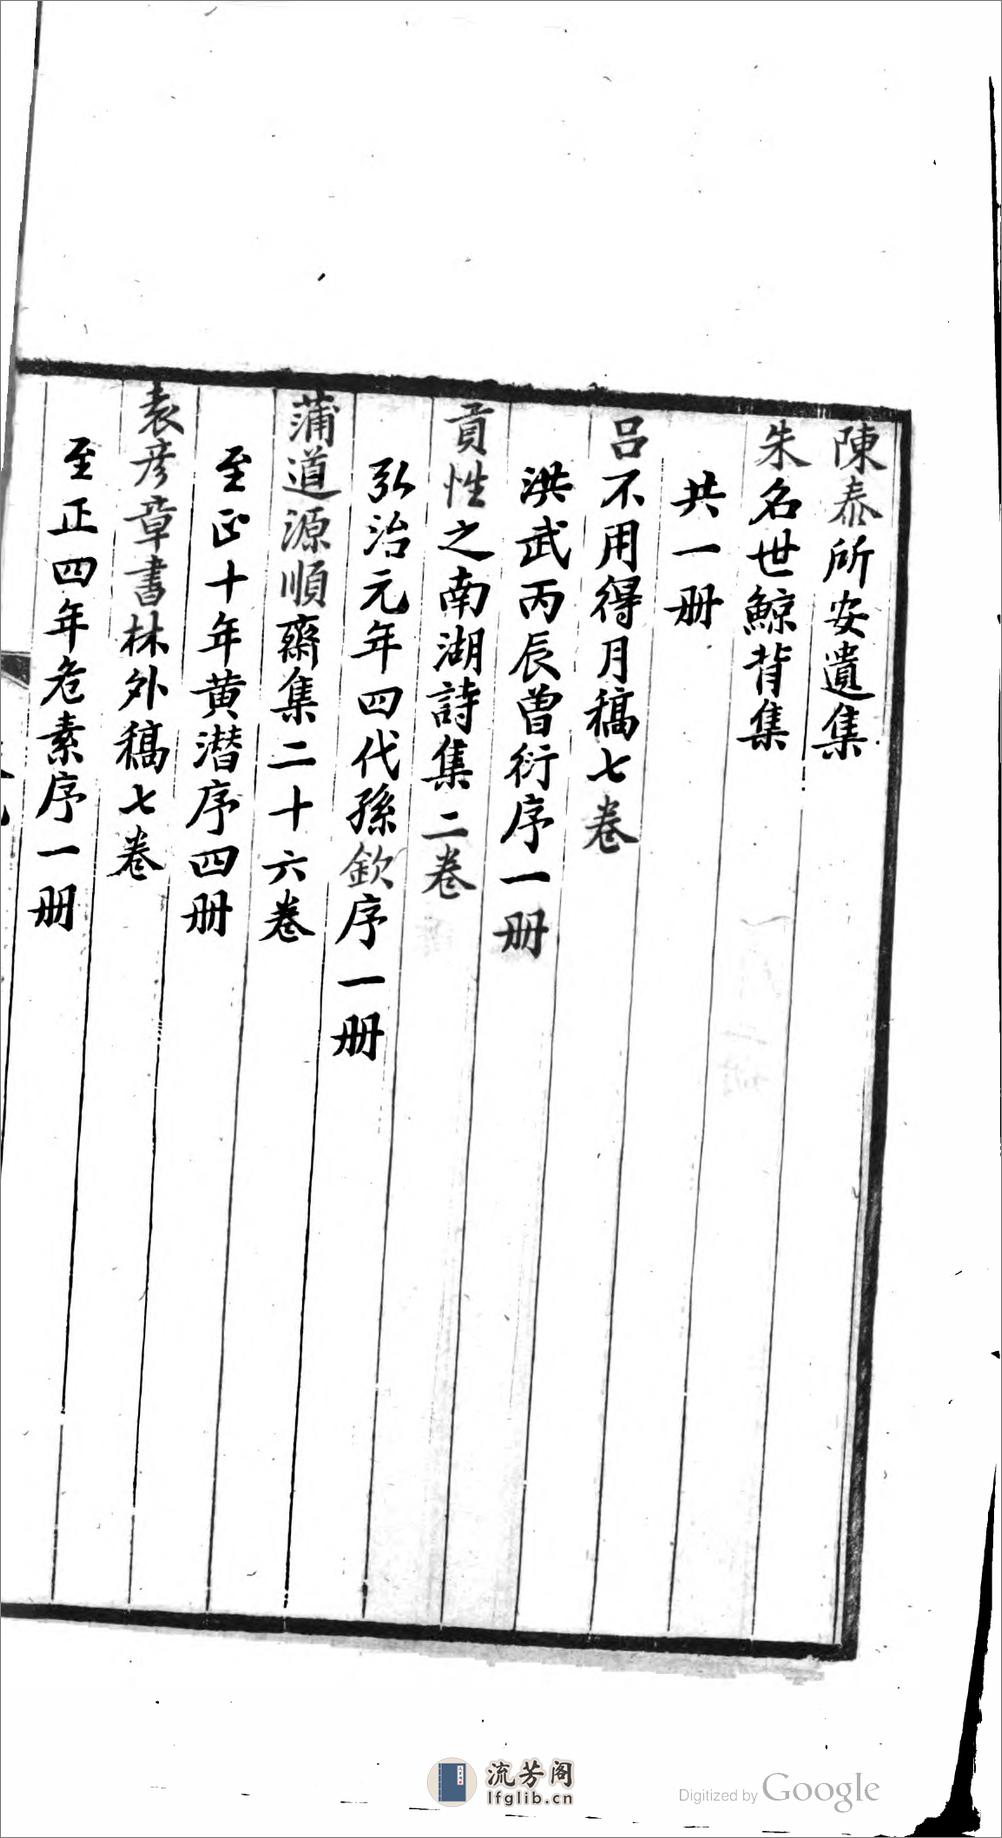 陳泰所安遺集
朱名世鯨背集
共一册
吕不用得月稿七卷
洪武丙辰曾衍序一册
貢性之南湖詩集二卷
弘治元年四代孫欽序一册
蒲道源順齋集二十六卷
至正十年黄潜序四册
袁彦章書林外稿七卷
至正四年危素序一册
流芳阁
lfglib.cn
Digitized by Google